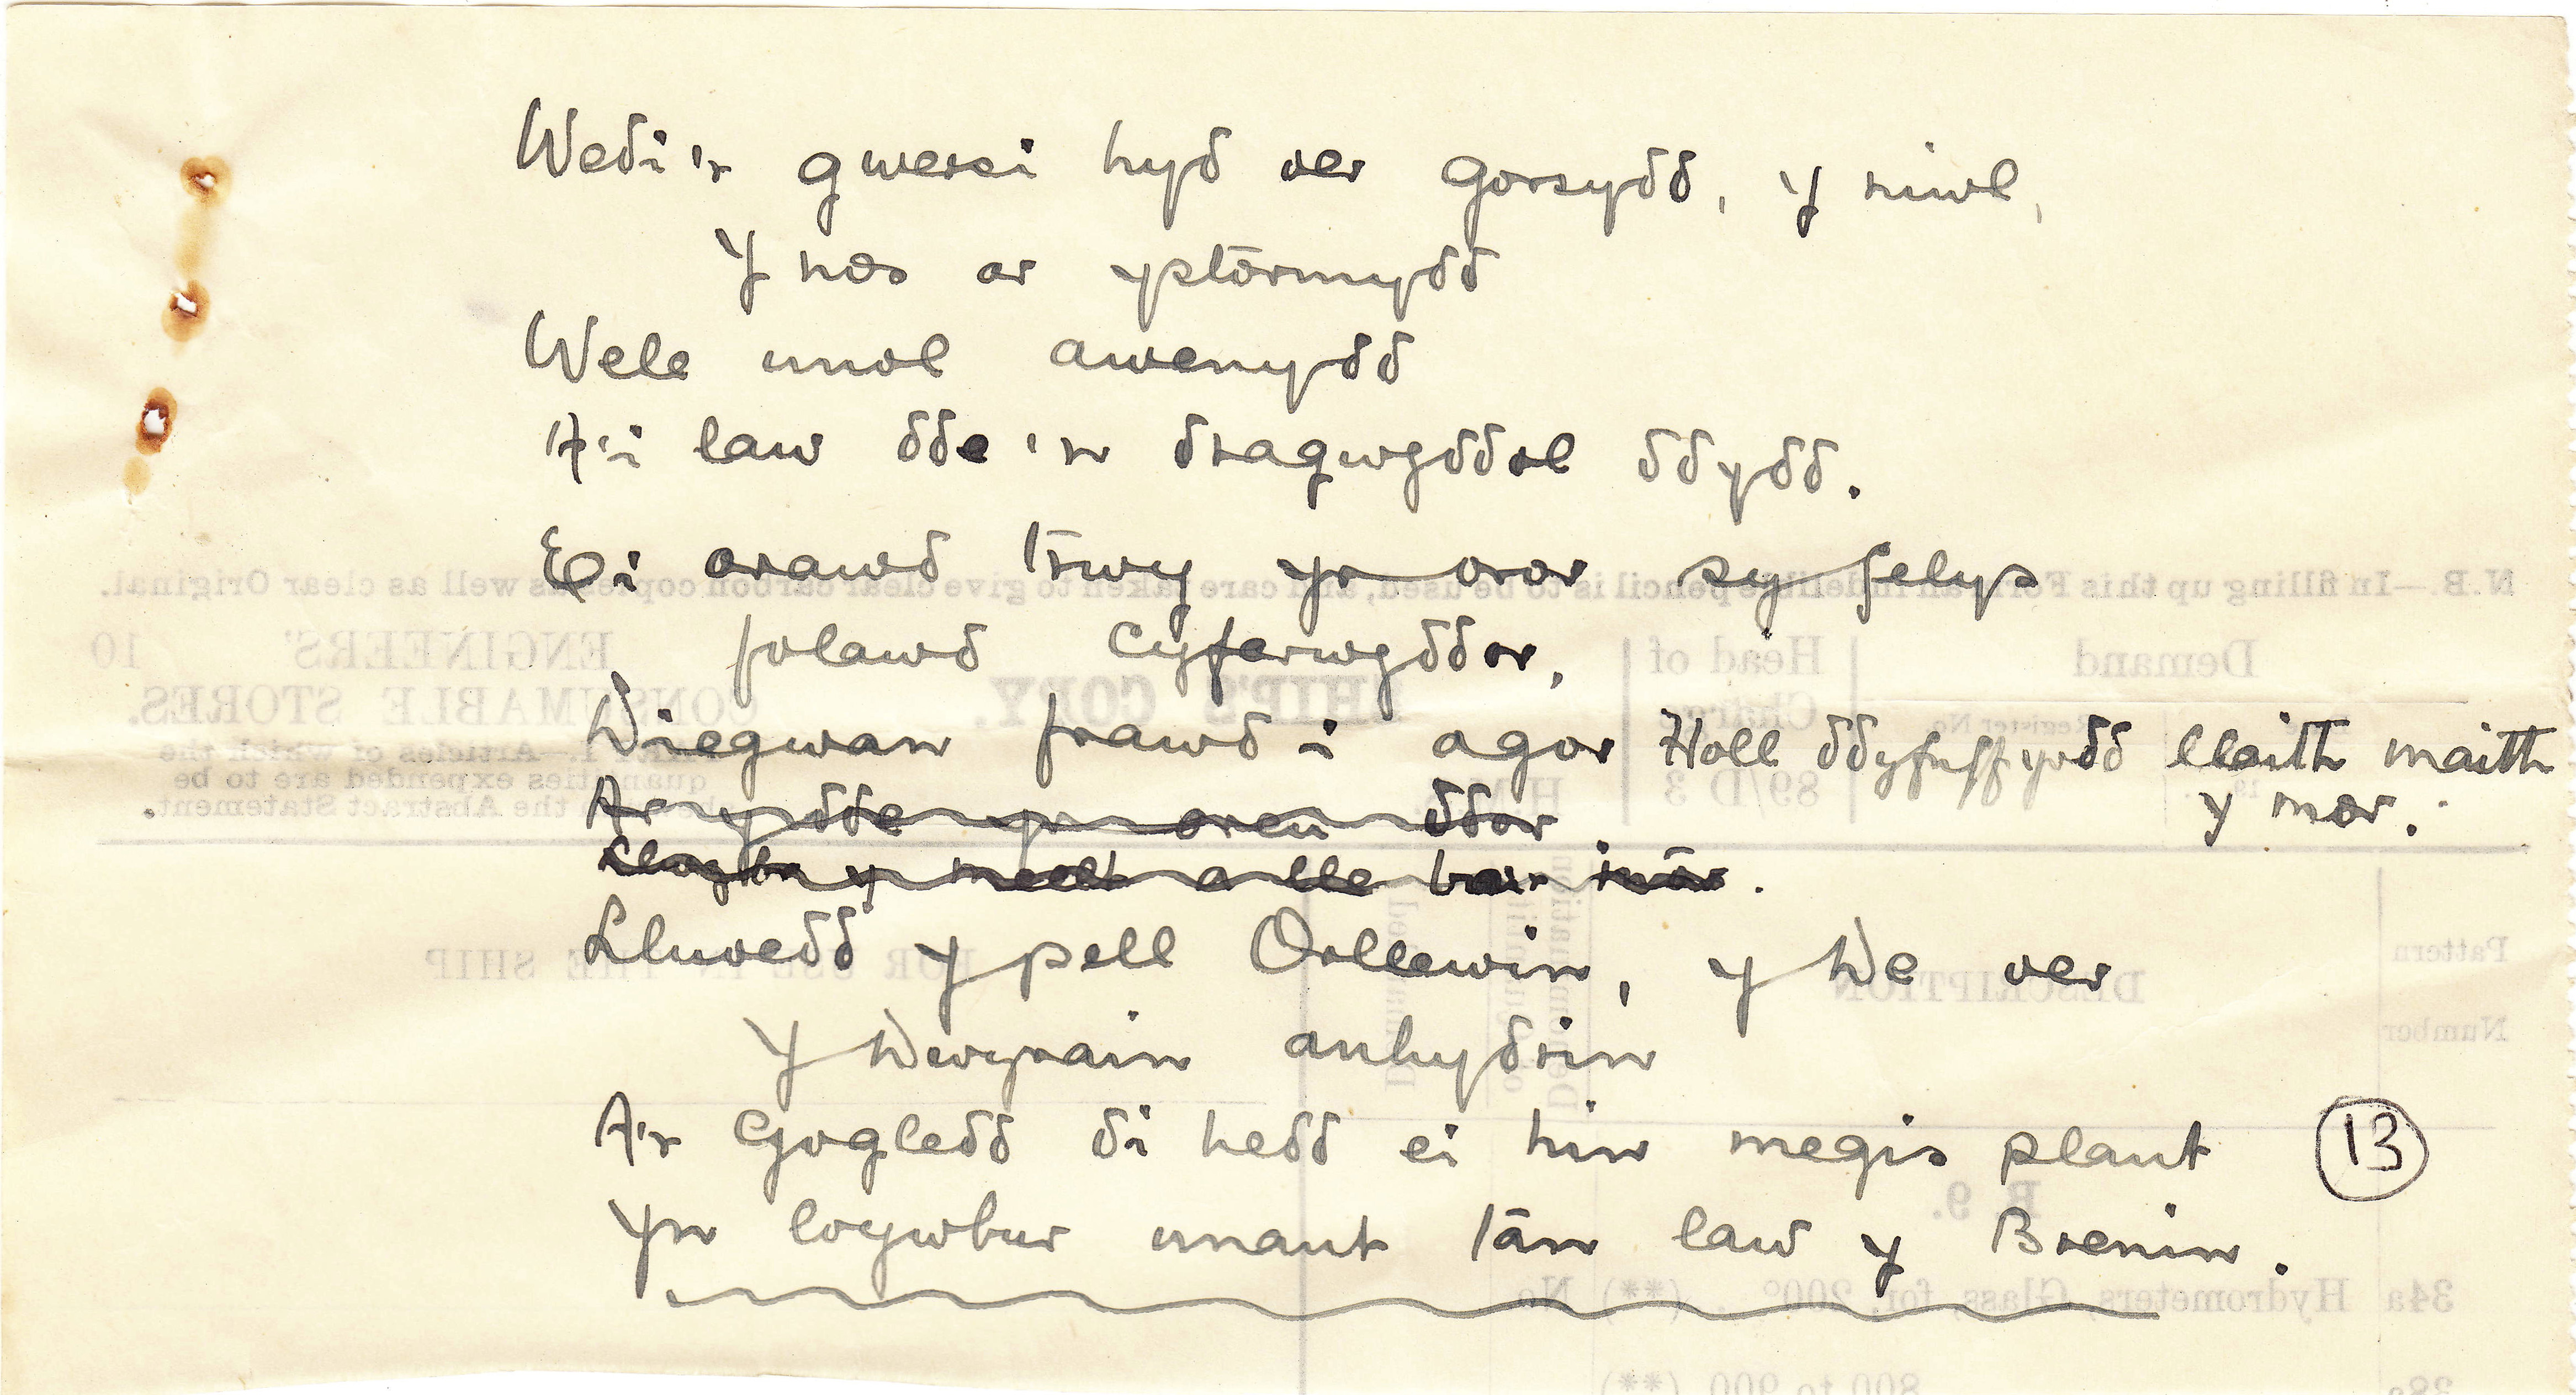 Wedi'r gwersi hyd oer gorsydd, y niwl,
Y nos a'r ystormydd
Wele unol awenydd
A'i law dde'n dragwyddol ddydd.
Ei arawd trwy yr oror sy felys
folawd Cyfarwyddor,
Diegwan frawd i agor Holl ddyfnffyrdd llaith maith
y mor.
Ar ydde yr oreu ddor
y mellt a lle bo'r
Lluoedd y pell Orllewin, y De oer
Y Dwyrain anhydrin
A'r Gogledd di hedd ei hin megis plant
Yn loywbur unant tan law y Brenin.
13
N.B.—In filling up this Form an indelible pencil is to be used, and care taken to give clear carbon copies as well as clear Original.
Demand
Head of
SHIP'S COPY.
ENGINEERS'
10
CONSUMABLE STORES.
Register No.
89/D 3
Articles of which the
quantities expended are to be
the Abstract Statement.
Pattern
Number
DESCRIPTION
FOR USE IN THE SHIP
34a Hydrometers, Glass, for, 200° . (**) No.
800 to 900 (**)